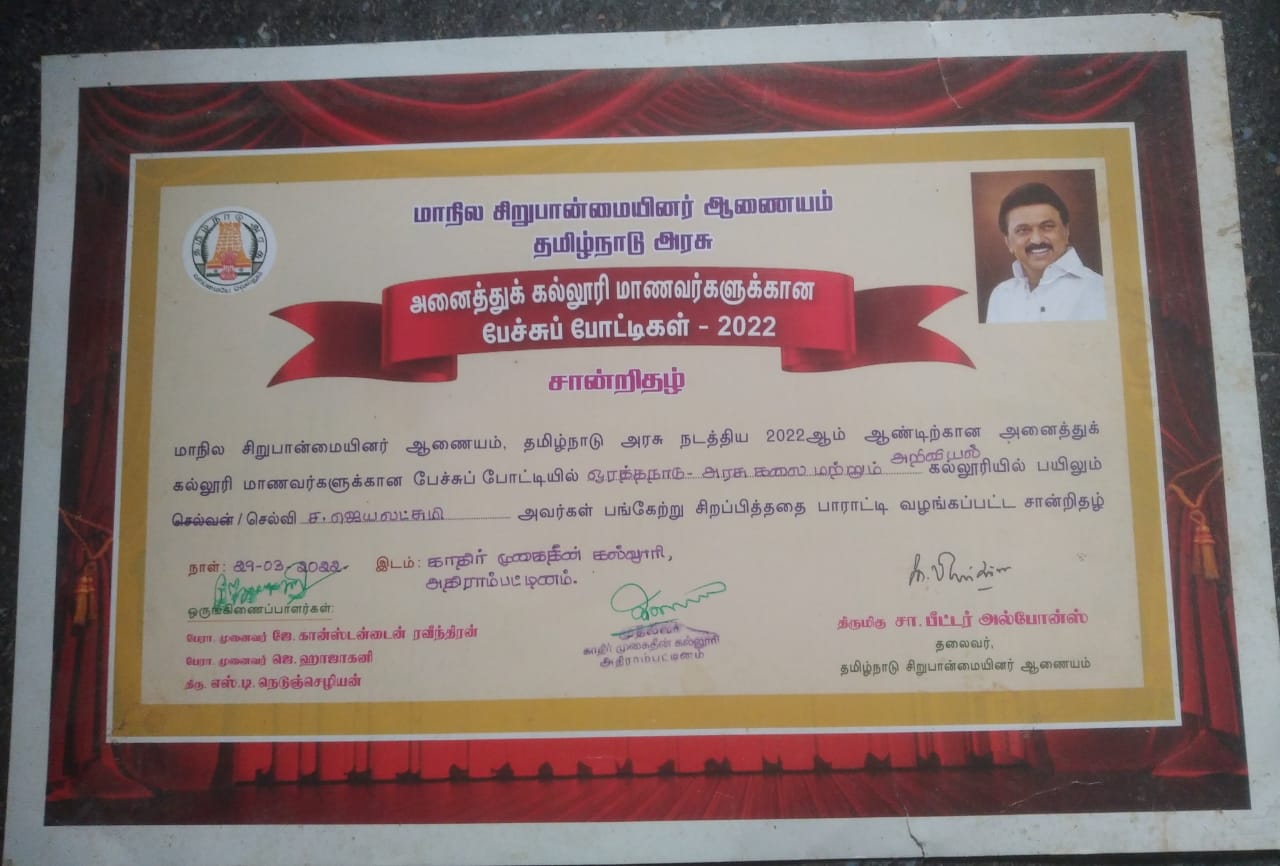 மாநில சிறுபான்மையினர் ஆணையம்
தமிழ்நாடு அரசு
தமிழ்நாடு அரசு
வாய்மையே வெல்லும்
அனைத்துக் கல்லூரி மாணவர்களுக்கான
பேச்சுப் போட்டிகள் - 2022
சான்றிதழ்
மாநில சிறுபான்மையினர் ஆணையம், தமிழ்நாடு அரசு நடத்திய 2022ஆம் ஆண்டிற்கான அனைத்துக்
கல்லூரி மாணவர்களுக்கான பேச்சுப் போட்டியில் ஒரத்தநாடு- அரசு கலை மற்றும் அறிவியல் கல்லூரியில் பயிலும்
செல்வன் / செல்வி ச. ஜெயலட்சுமி அவர்கள் பங்கேற்று சிறப்பித்ததை பாராட்டி வழங்கப்பட்ட சான்றிதழ்
நாள்: 29-03-2022. இடம்: காதிர் முகைதீன் கல்லூரி,
அதிராம்பட்டினம்.
ஒருங்கிணைப்பாளர்கள்:
பேரா. முனைவர் ஜே. கான்ஸ்டன்டைன் ரவீந்திரன்
பேரா. முனைவர் ஜெ. ஹாஜாகனி
திரு. எஸ்.டி. நெடுஞ்செழியன்
முதல்வர்
காதிர் முகைதீன் கல்லூரி
அதிராம்பட்டினம்
திருமிகு சா. பீட்டர் அல்போன்ஸ்
தலைவர்,
தமிழ்நாடு சிறுபான்மையினர் ஆணையம்